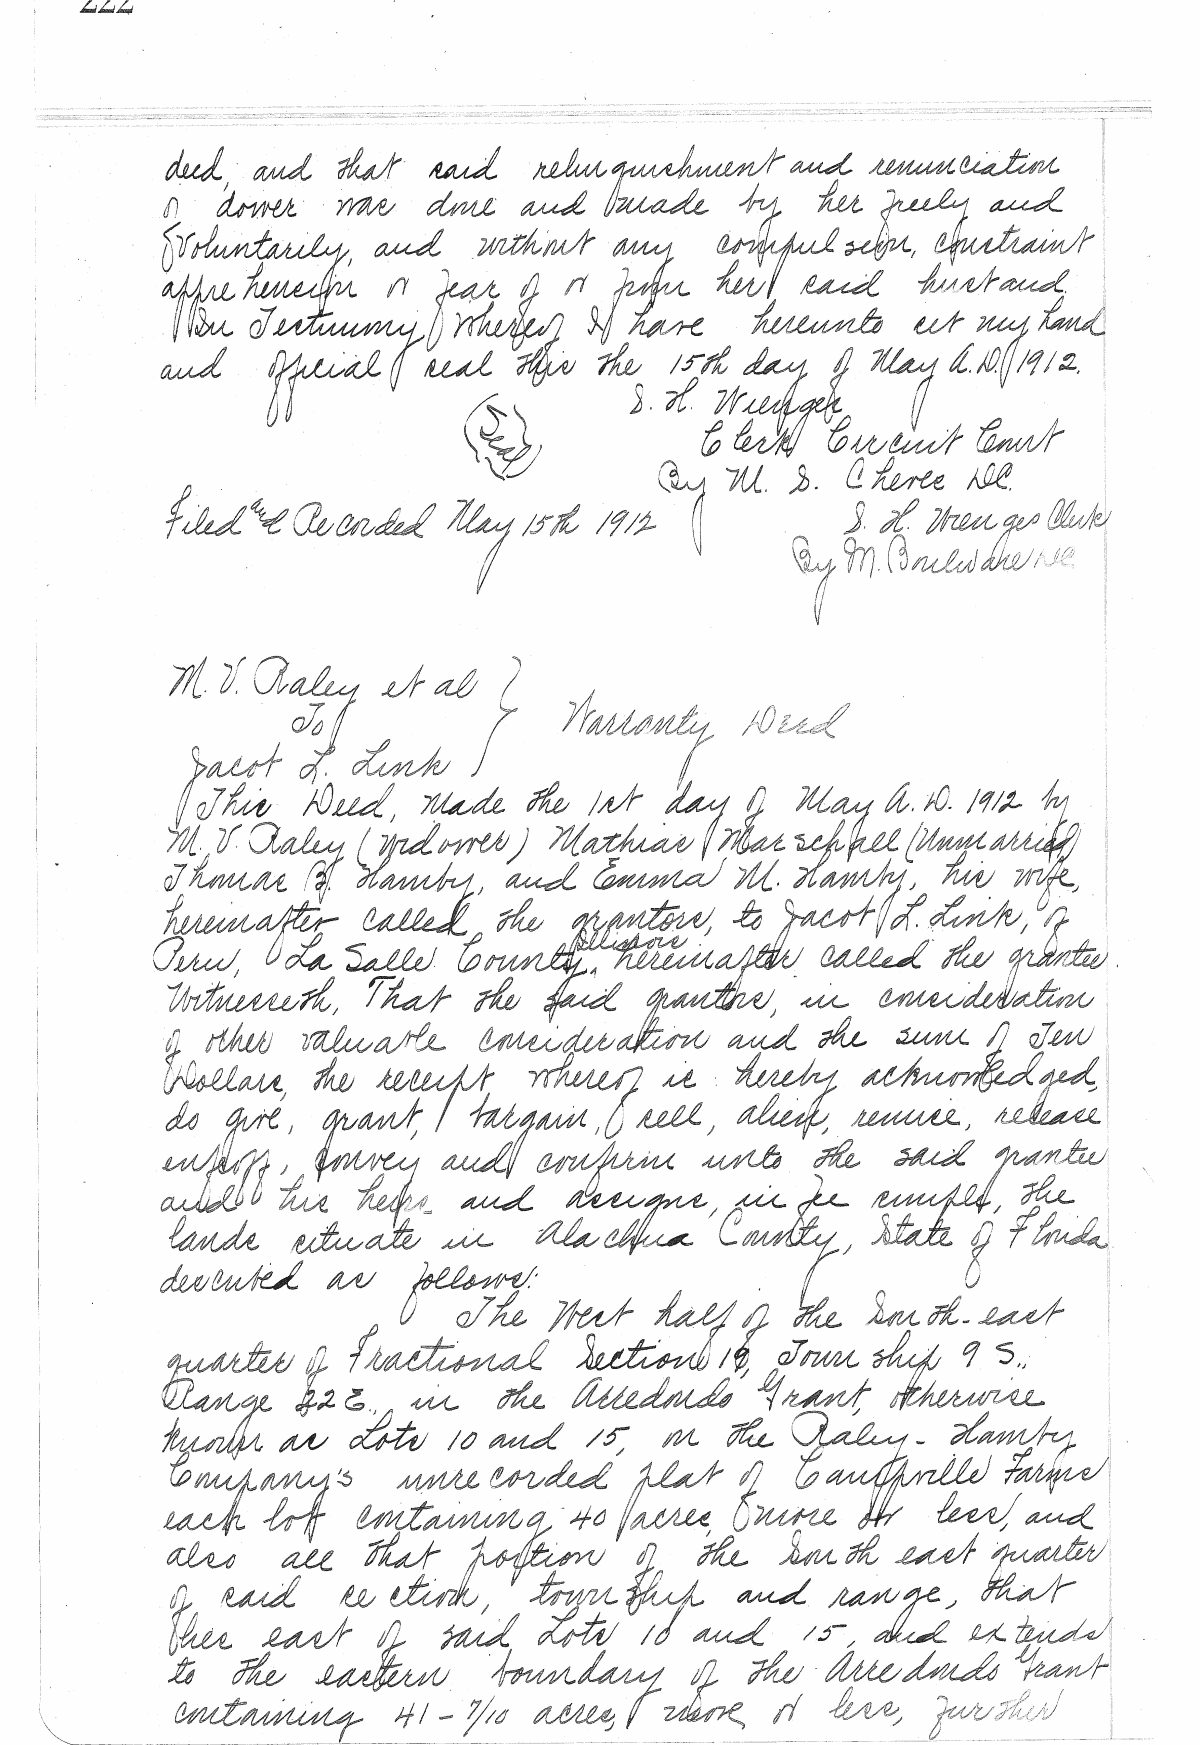 222
deed, and that said relinquishment and renunciation
of dower was done and made by her freely and
Voluntarily, and without any compulsion, constraint
apprehension or fear of or from her said husband.
In Testimony Whereof I have hereunto set my hand
and official seal this the 15th day of May A.D. 1912.
S. H. Wienges
Seal
Clerk Circuit Court
By M. S. Cheves D.C.
Filed and Recorded May 15th 1912
S. H. Wienges Clerk
By M. Boulware D.C.
M. V. Raley et al
To
Warranty Deed
Jacob L. Link
This Deed, made the 1st day of May A.D. 1912 by
M. V. Raley (Widower) Mathias Marschall (Unmarried)
Thomas B. Hamby, and Emma M. Hamby, his wife,
hereinafter called the grantors, to Jacob L. Link, of
Peru, La Salle County, Illinois hereinafter called the grantee.
Witnesseth, That the said grantors, in consideration
of other valuable consideration and the sum of Ten
Dollars, the receipt whereof is hereby acknowledged,
do give, grant, bargain, sell, alien, remise, release
enfeoff, convey and confirm unto the said grantee
and his heirs and assigns, in fee simple, the
lands situate in Alachua County, State of Florida
described as follows:
The West half of the South-east
quarter of Fractional Section, Township 9 S.,
Range 22 E., in the Arredondo Grant, otherwise
known as Lots 10 and 15, on the Raley-Hamby
Company's unrecorded plat of Campville Farms
each lot containing 40 acres, more or less, and
also all that portion of the South east quarter
of said section, township and range, that
lies east of said Lots 10 and 15, and extends
to the eastern boundary of the Arredondo Grant
containing 41-7/10 acres, more or less, further